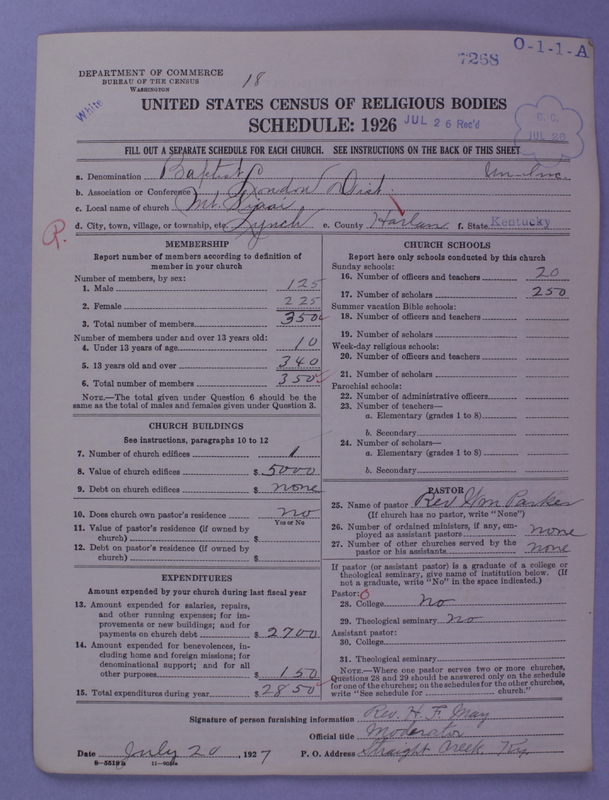 7268
O-1-1-A
DEPARTMENT OF COMMERCE
BUREAU OF THE CENSUS
WASHINGTON
18
White
UNITED STATES CENSUS OF RELIGIOUS BODIES
SCHEDULE: 1926
JUL 26 Rec'd
C. C.
JUL 28
FILL OUT A SEPARATE SCHEDULE FOR EACH CHURCH. SEE INSTRUCTIONS ON THE BACK OF THIS SHEET
a. Denomination Baptist
b. Association or Conference London Dist.
c. Local name of church Mt. Sinai
d. City, town, village, or township, etc. Lynch e. County Harlan f. State Kentucky
P.
MEMBERSHIP
Report number of members according to definition of
member in your church
Number of members, by sex:
1. Male 125
2. Female 225
3. Total number of members 350
Number of members under and over 13 years old:
4. Under 13 years of age 10
5. 13 years old and over 340
6. Total number of members 350
NOTE.—The total given under Question 6 should be the
same as the total of males and females given under Question 3.
CHURCH BUILDINGS
See instructions, paragraphs 10 to 12
7. Number of church edifices 1
8. Value of church edifices $ 5000
9. Debt on church edifices $ none
10. Does church own pastor's residence no
Yes or No
11. Value of pastor's residence (if owned by
church) $
12. Debt on pastor's residence (if owned by
church) $
EXPENDITURES
Amount expended by your church during last fiscal year
13. Amount expended for salaries, repairs,
and other running expenses; for im-
provements or new buildings; and for
payments on church debt $ 2700
14. Amount expended for benevolences, in-
cluding home and foreign missions; for
denominational support; and for all
other purposes $ 150
15. Total expenditures during year $ 2850
CHURCH SCHOOLS
Report here only schools conducted by this church
Sunday schools:
16. Number of officers and teachers 20
17. Number of scholars 250
Summer vacation Bible schools:
18. Number of officers and teachers
19. Number of scholars
Week-day religious schools:
20. Number of officers and teachers
21. Number of scholars
Parochial schools:
22. Number of administrative officers
23. Number of teachers—
a. Elementary (grades 1 to 8)
b. Secondary
24. Number of scholars—
a. Elementary (grades 1 to 8)
b. Secondary
PASTOR
25. Name of pastor Rev. Wm Parker
(If church has no pastor, write "None")
26. Number of ordained ministers, if any, em-
ployed as assistant pastors none
27. Number of other churches served by the
pastor or his assistants none
If pastor (or assistant pastor) is a graduate of a college or
theological seminary, give name of institution below. (If
not a graduate, write "No" in the space indicated.)
Pastor: 0
28. College no
29. Theological seminary no
Assistant pastor:
30. College
31. Theological seminary
NOTE.—Where one pastor serves two or more churches,
Questions 28 and 29 should be answered only on the schedule
for one of the churches; on the schedules for the other churches,
write "See schedule for church."
Signature of person furnishing information Rev. H. F. May
Official title Moderator
Date July 20, 1927 P. O. Address Straight Creek, Ky.
8-5519 a